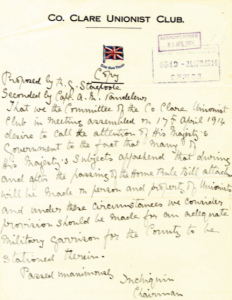 CO. CLARE UNIONIST CLUB.
Copy
Proposed by R. J. Stacpoole
Seconded by Capt. A. M. Vandeleur
That we the Committee of the Co Clare Unionist
Club in meeting assembled on 17th April 1914
desire to call the attention of His Majesty's
Government to the fact that many of
His Majesty's Subjects apprehend that during
and after the passing of the Home Rule Bill attacks
will be made on person and property of Unionists
and under these circumstances we consider
provision should be made for an adequate
Military Garrison for the County to be
stationed therein.
Passed unanimously
Inchiquin
Chairman